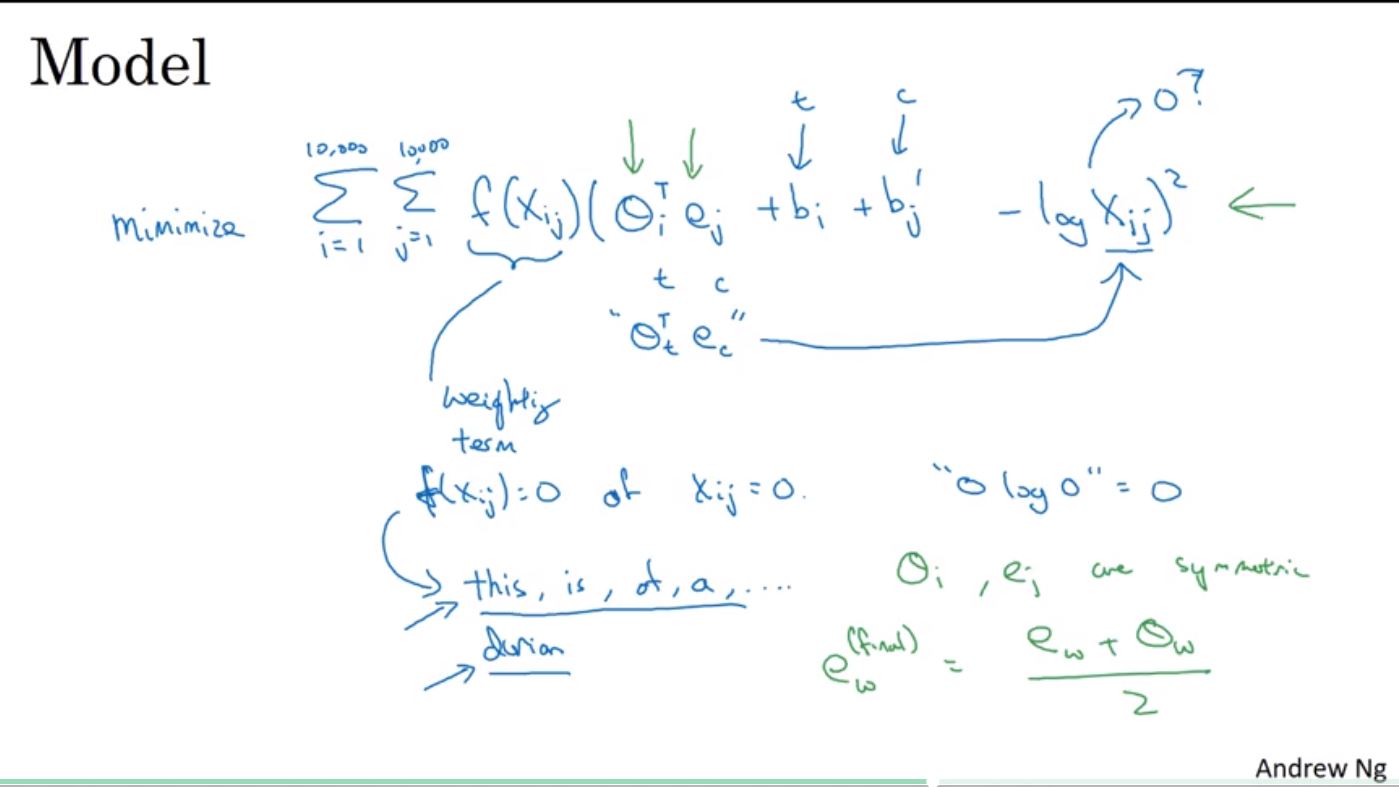 Model
t c 0?
minimize 10,000 Σ i=1 10,000 Σ j=1 f(Xij)(θiᵀ ej + bi + bj' - log Xij)²
t c
"θtᵀ ec"
weighting
term
f(Xij)=0 of Xij=0. "0 log 0" = 0
this, is, of, a, ....
θi, ej are symmetric
durian
ew(final) = ew + θw / 2
Andrew Ng